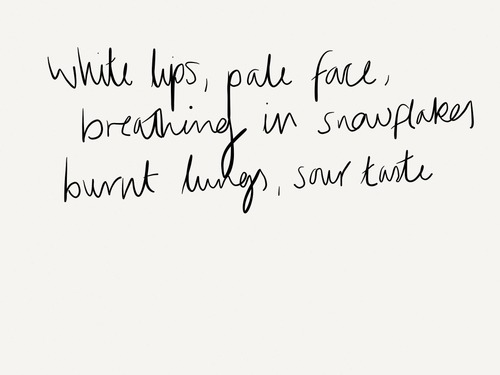 White lips, pale face,
breathing in snowflakes
burnt lungs, sour taste